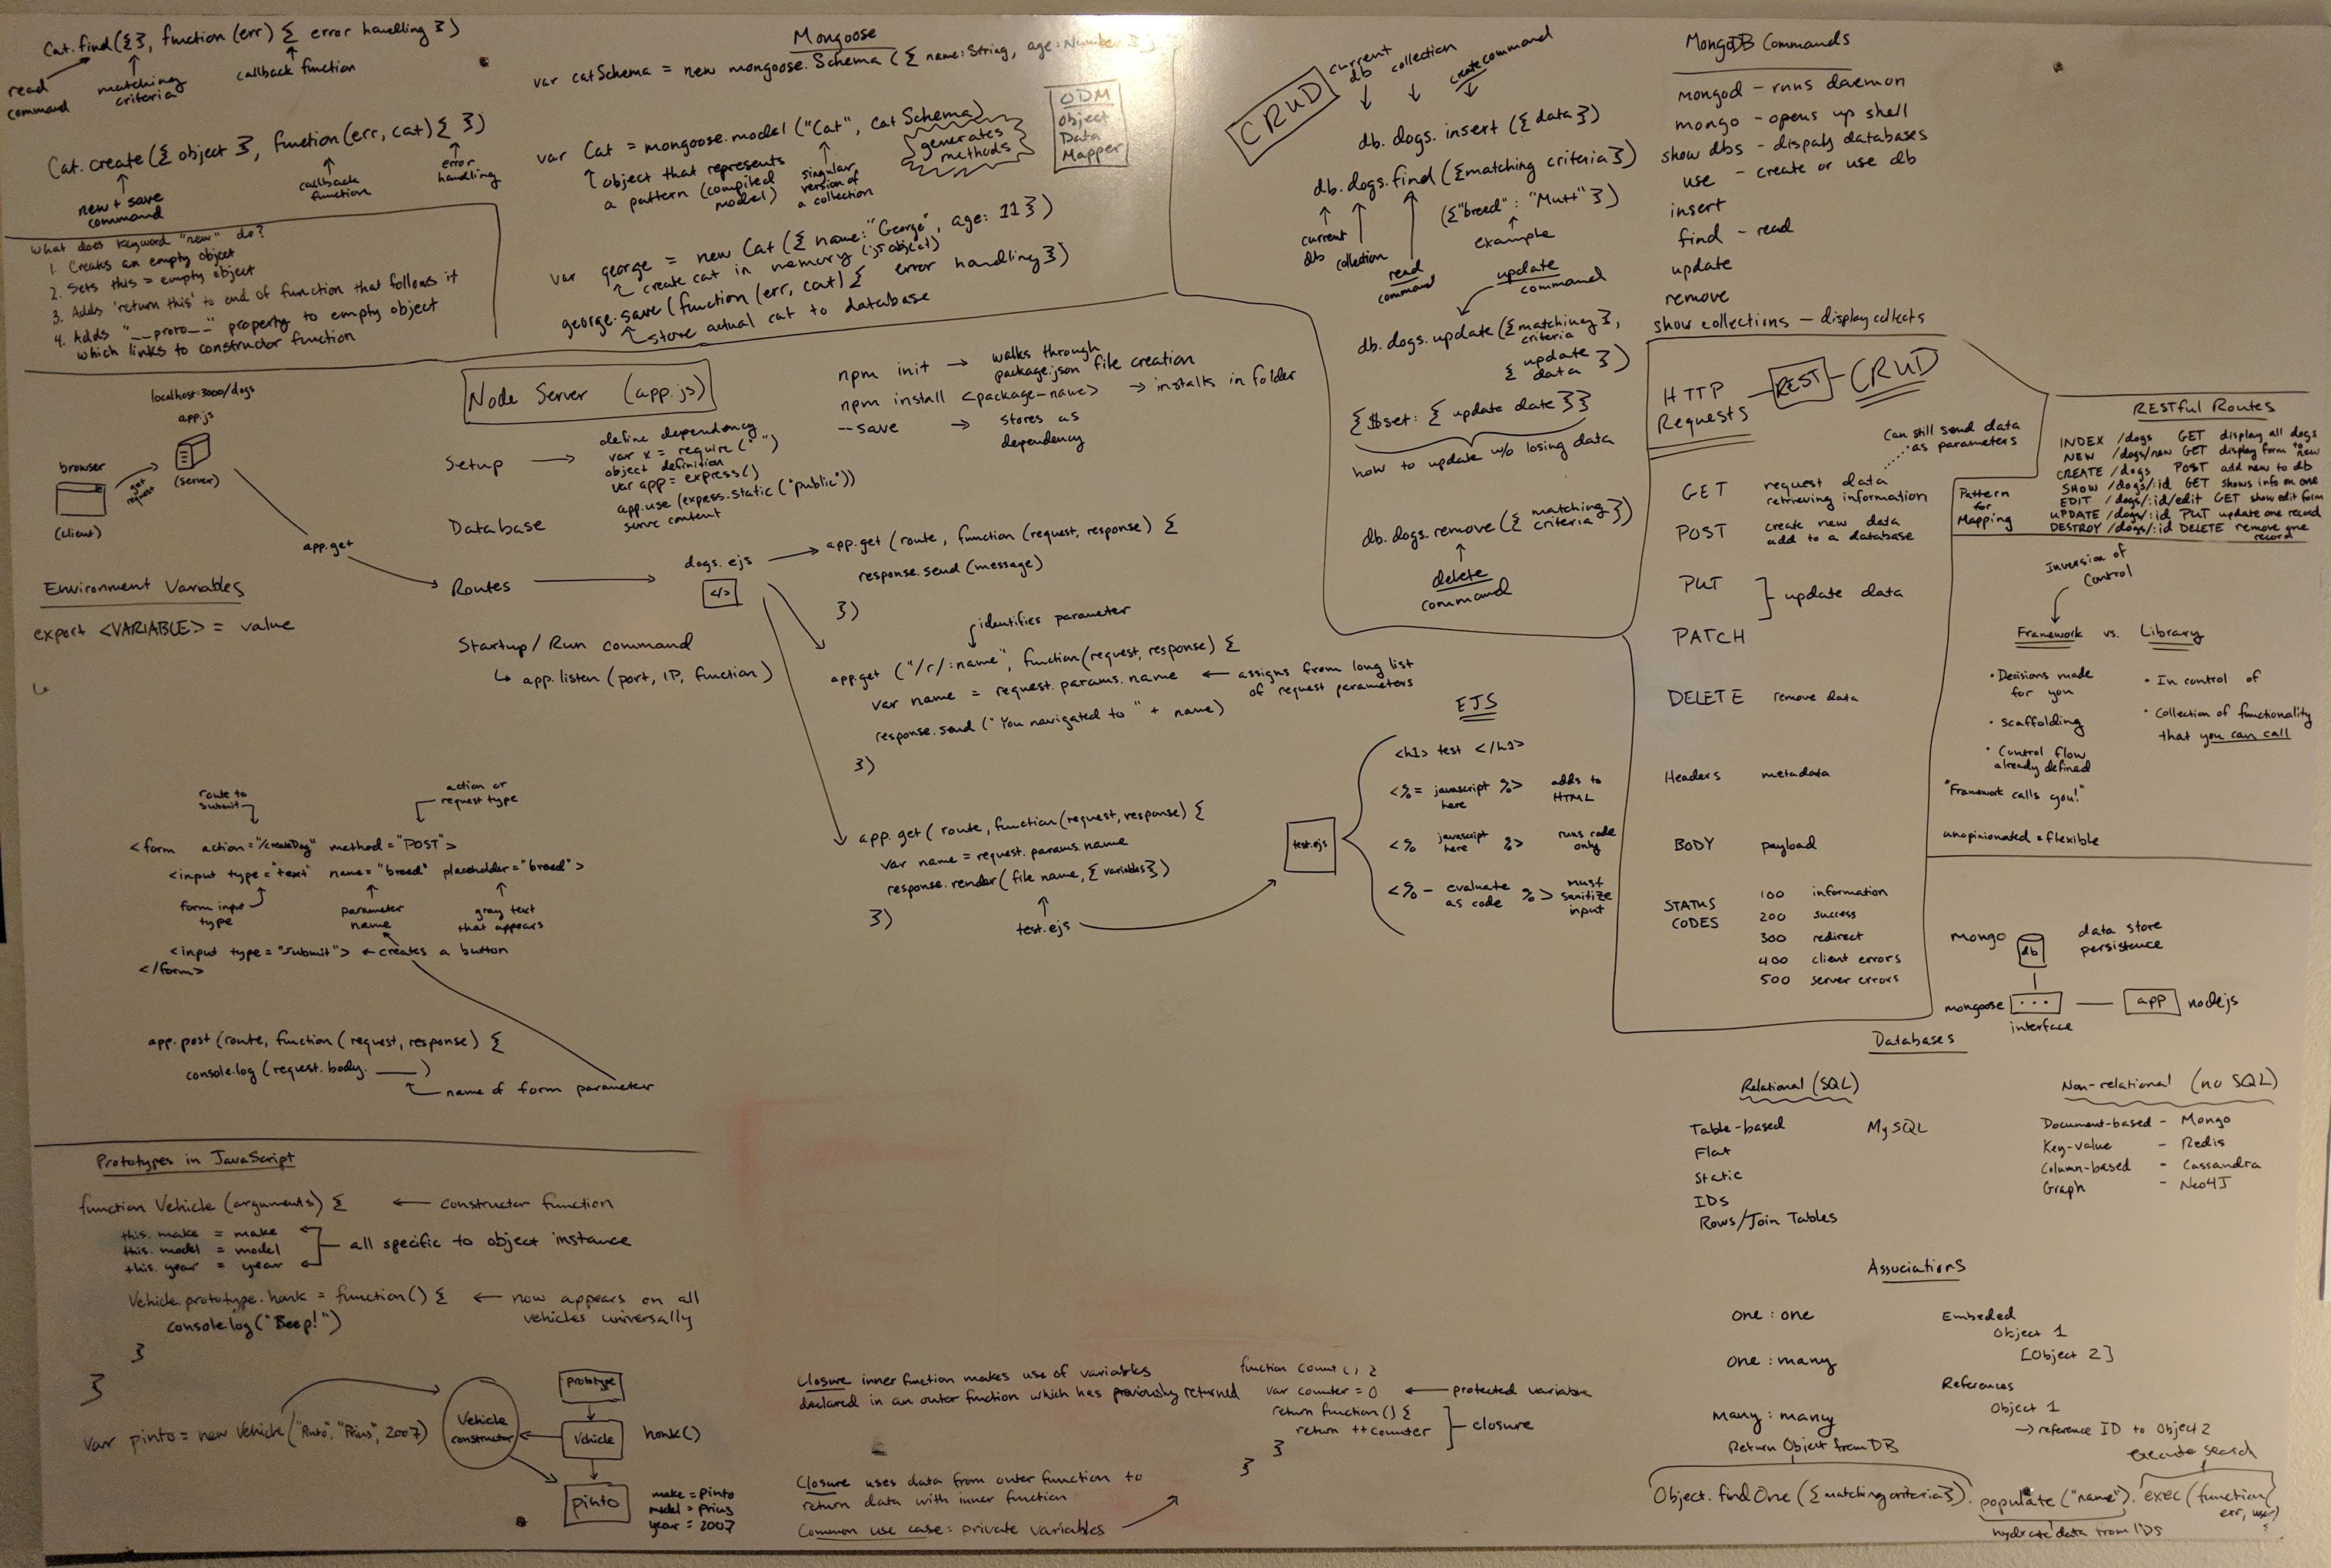 Cat.find({}, function (err) { error handling })
read command
matching criteria
callback function
Cat.create({ object }, function(err, cat) { })
new + save command
callback function
error handling
What does keyword "new" do?
1. Creates an empty object
2. Sets this = empty object
3. Adds 'return this' to end of function that follows it
4. Adds "__proto__" property to empty object
which links to constructor function
Mongoose
var catSchema = new mongoose.Schema({ name: String, age: Number })
var Cat = mongoose.model ("Cat", catSchema)
object that represents
a pattern (compiled
model)
singular
version of
a collection
generates
methods
ODM
Object
Data
Mapper
var george = new Cat({ name: "George", age: 11 })
create cat in memory (js object)
george.save(function (err, cat) { error handling })
store actual cat to database
CRUD
current db
collection
create command
db.dogs.insert({data})
db.dogs.find({matching criteria})
current db
collection
read command
({"breed" : "Mutt" })
example
update command
db.dogs.update({matching criteria},
{ update data })
{$set: { update date }}
how to update w/o losing data
db.dogs.remove({ matching criteria })
delete
command
MongoDB Commands
mongod - runs daemon
mongo - opens up shell
show dbs - dispaly databases
use - create or use db
insert
find - read
update
remove
show collections - display collects
localhost:3000/dogs
app.js
(server)
browser
get request
(client)
app.get
Node Server (app.js)
npm init → walks through
package.json file creation
npm install <package-name> → installs in folder
--save → stores as
dependency
Setup →
define dependency
var x = require(" ")
object definition
var app = express()
app.use (express.static ("public"))
serve content
Database
Routes → dogs.ejs
</>
app.get (route, function (request, response) {
response.send (message)
})
Startup/Run command
app.listen (port, IP, function)
identifies parameter
app.get ("/r/:name", function(request, response) {
var name = request.params.name ← assigns from long list
of request parameters
response.send ("You navigated to " + name)
})
app.get( route, function (request, response) {
var name = request.params.name
response.render( file name, { variables })
})
test.ejs
Environment Variables
export <VARIABLE> = value
route to
submit
action or
request type
<form action="/createDog" method="POST">
<input type="text" name="breed" placeholder="breed">
form input
type
parameter
name
gray text
that appears
<input type="submit"> ← creates a button
</form>
app.post (route, function ( request, response) {
console.log (request.body. ____ )
name of form parameter
EJS
test.ejs
<h1> test </h1>
<%= javascript here %> adds to HTML
<% javascript here %> runs code only
<%- evaluate as code %> must sanitize input
HTTP
Requests
REST
CRUD
Can still send data
as parameters
GET request data
retrieving information
POST create new data
add to a database
PUT
update data
PATCH
DELETE remove data
Headers metadata
BODY payload
STATUS
CODES
100 information
200 success
300 redirect
400 client errors
500 server errors
RESTful Routes
Pattern
for
Mapping
INDEX /dogs GET display all dogs
NEW /dogs/new GET display form to new
CREATE /dogs POST add new to db
SHOW /dogs/:id GET shows info on one
EDIT /dogs/:id/edit GET show edit form
UPDATE /dogs/:id PUT update one record
DESTROY /dogs/:id DELETE remove one
record
Inversion of
Control
Framework vs. Library
• Decisions made
for you
• Scaffolding
• Control flow
already defined
"Framework calls you!"
unopinionated = flexible
• In control of
• Collection of functionality
that you can call
mongo
db
data store
persistence
mongoose
...
interface
app
nodejs
Databases
Relational (SQL)
Table-based
MySQL
Flat
Static
IDs
Rows/Join Tables
Non-relational (no SQL)
Document-based - Mongo
Key-value - Redis
Column-based - Cassandra
Graph - Neo4J
Associations
one : one
one : many
many : many
Embeded
Object 1
[Object 2]
References
Object 1
→ reference ID to Object 2
Return Object from DB
execute search
Object.findOne ({matching criteria}).populate ("name").exec (function(
err, user)
hydrate data from IDS
Prototypes in JavaScript
function Vehicle (arguments) { ← constructor function
this.make = make
this.model = model
this.year = year
all specific to object instance
Vehicle.prototype.honk = function() { ← now appears on all
vehicles universally
console.log("Beep!")
}
}
var pinto = new Vehicle ("Pinto", "Prius", 2007)
Vehicle
constructor
prototype
Vehicle
honk()
pinto
make = pinto
model = prius
year = 2007
Closure inner function makes use of variables
declared in an outer function which has previously returned
Closure uses data from outer function to
return data with inner function
Common use case: private variables
function count() {
var counter = 0 ← protected variable
return function() {
return ++counter
}
closure
}